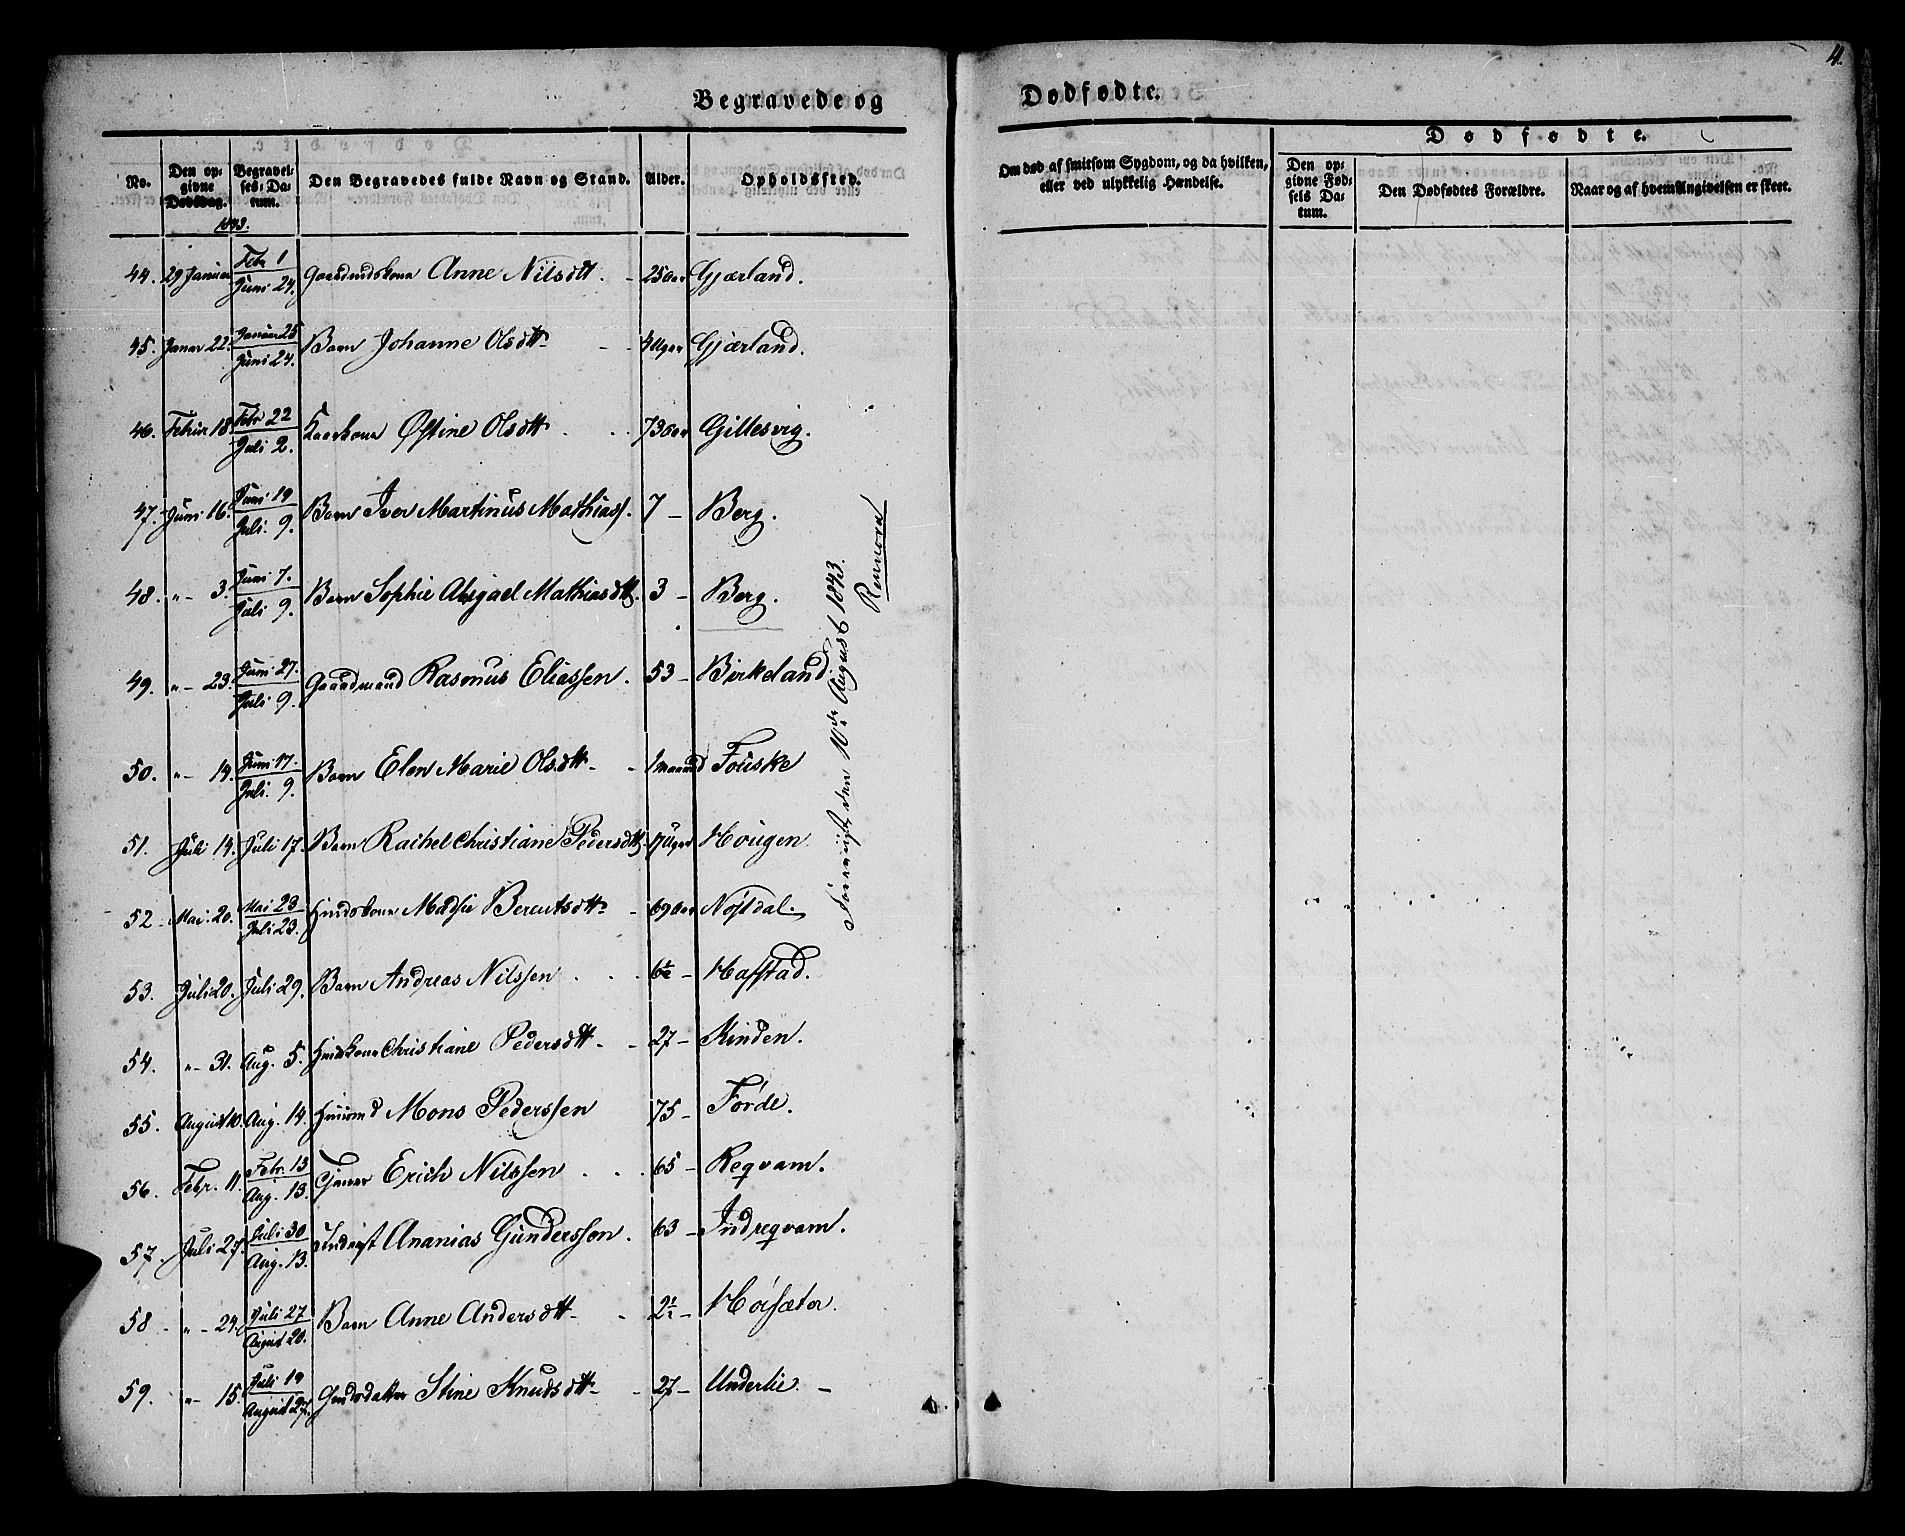 4.
Begravede og Dødfødte.
No. | Den opgivne Dødsdag. | Begravelses-Datum. | Den Begravedes fulde Navn og Stand. | Alder. | Opholdssted. | Om død af smitsom Sygdom, og da hvilken, eller ved ulykkelig Hændelse. | Dødfødte.
Den opgivne Fødsels Datum. | Den Dødfødtes Forældre. | Naar og af hvem Angivelsen er skeet.
1843.
44. | 29 Januar | Febr 1 / Juni 24. | Anne Nilsdtt. | 25 Aar | Gjærland.
45. | Januar 22. | Januar 25 / Juni 24. | Barn Johanne Olsdtt | 4 Uger | Gjærland.
46. | Febru 18 | Febr 22 / Juli 2. | Kaarkone Østine Olsdtt | 73 Aar | Gillesvig.
47. | Juni 16. | Juni 19 / Juli 9. | Barn Iver Martinus Mathiass. | 7 - | Berg.
48. | " - 3. | Juni 7. / Juli 9. | Barn Sophie Abigael Mathiasdtt. | 3 - | Berg.
49. | " - 23. | Juni 27. / Juli 9. | Gaardmand Rasmus Eliassen. | 53 - | Birkeland
50. | " - 14. | Juni 17. / Juli 9. | Barn Elen Marie Olsdtt - | 1 maaned | Fouske
51. | Juli 14. | Juli 17. | Barn Rachel Christiane Pedersdtt | 17 Uger | Hougen.
52 - | Mai 20. | Mai 23 / Juli 23. | Huuskone Madsie Berentsdtt | 69 Aar | Nøstdal.
53. | Juli 20. | Juli 29. | Barn Andreas Nilssen | 6½ - | Hafstad.
54. | " - 31. | Aug. 5. | Christiane Pedersdtt - | 27 - | Kinden.
55. | August 10. | Aug. 14. | Huusmd Mons Pederssen | 75 - | Førde.
56. | Febr. 11. | Febr. 13 / Aug. 13. | Tjener Erich Nilssen | 65 - | Reqvam.
57. | Juli 27. | Juli 30 / Aug. 13. | Inderst Ananias Gunderssen. | 63 - | Indreqvam.
58 - | " - 24. | Juli 27 / August 20. | Barn Anne Andersdtt - | 2½ - | Høisæter.
59. | " - 15. | Juli 19 / August 27. | Stine Knudsdtt - | 27 - | Underlie. -
den 10de August 1843.
Rennord